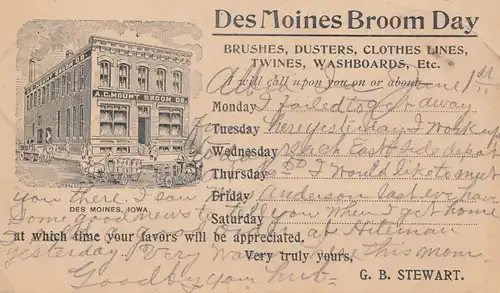 Des Moines Broom Day
BRUSHES, DUSTERS, CLOTHES LINES,
TWINES, WASHBOARDS, Etc.
I will call upon you on or about
1st
A. G. MOUNT BROOM CO.
Monday I failed to get away
Tuesday here yesterday I
Wednesday East side depot
Thursday so I would like to meet
you there. I saw Anderson last eve have
Friday
DES MOINES, IOWA.
Some good news to tell you when I get home
Saturday
at Hileman
at which time your favors will be appreciated.
yesterday. Very this morn
Very truly yours,
Goodby your hub-
G. B. STEWART.